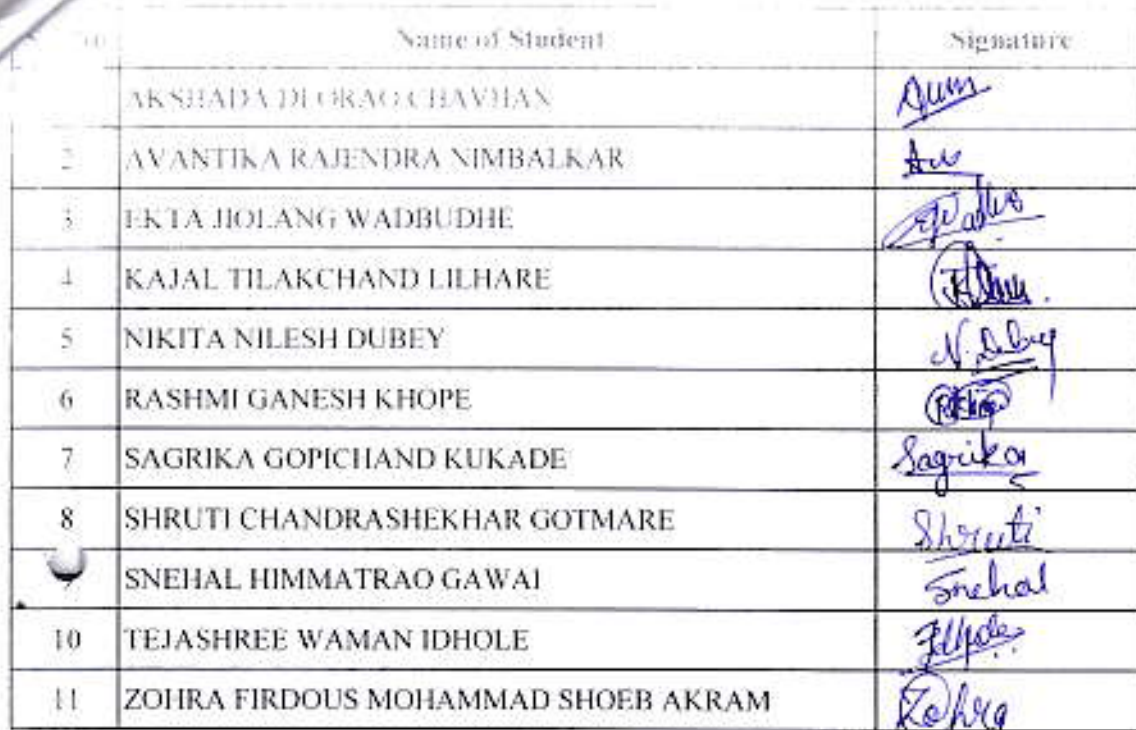 Name of Student Signature
AKSHADA DEORAO CHAVHAN
2 AVANTIKA RAJENDRA NIMBALKAR
3 EKTA JIOLANG WADBUDHE
4 KAJAL TILAKCHAND LILHARE
5 NIKITA NILESH DUBEY N. Dubey
6 RASHMI GANESH KHOPE
7 SAGRIKA GOPICHAND KUKADE Sagrika
8 SHRUTI CHANDRASHEKHAR GOTMARE Shruti
SNEHAL HIMMATRAO GAWAI Snehal
10 TEJASHREE WAMAN IDHOLE
11 ZOHRA FIRDOUS MOHAMMAD SHOEB AKRAM Zohra